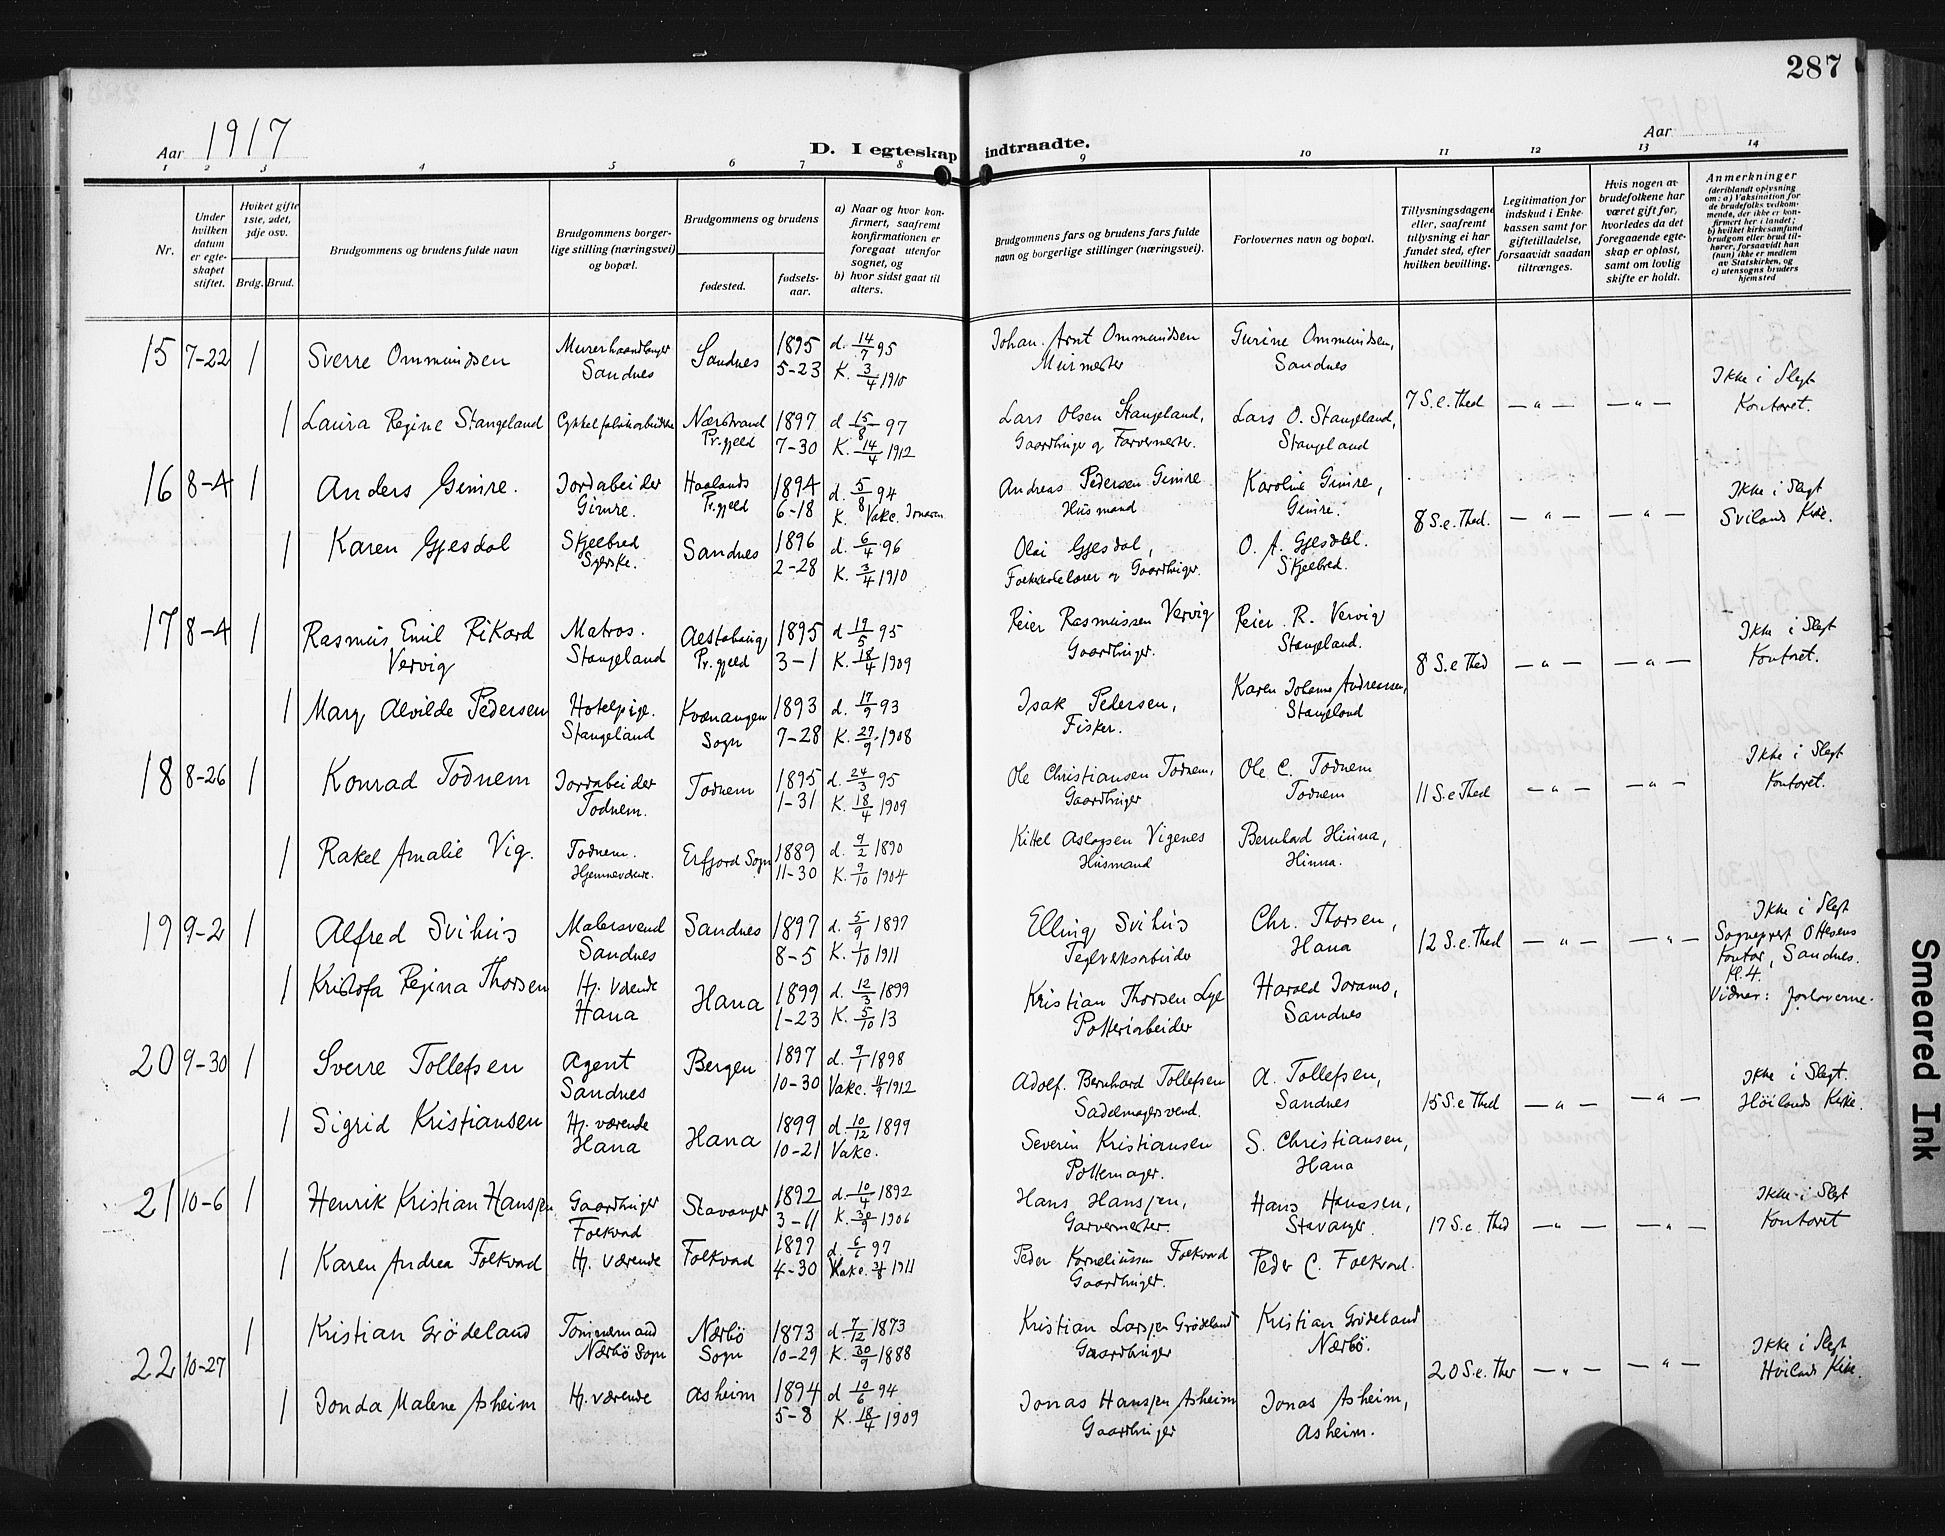 287
Aar 1917
D. I egteskap indtraadte.
Aar
1 2 3 4 5 6 7 8 9 10 11 12 13 14
Nr.
Under hvilken datum er egteskapet stiftet.
Hviket gifte 1ste, 2det, 3dje osv.
Brdg. Brud.
Brudgommens og brudens fulde navn
Brudgommens og brudens borgerlige stilling (næringsvei) og bopæl.
Brudgommens og brudens
fødested.
fødselsaar.
a) Naar og hvor konfirmert, saafremt konfirmationen er foregaat utenfor sognet, og
b) hvor sidst gaat til alters.
Brudgommens fars og brudens fars fulde navn og borgerlige stillinger (næringsvei).
Forlovernes navn og bopæl.
Tillysningsdagene eller, saafremt tillysning ei har fundet sted, efter hvilken bevilling.
Legitimation for indskud i Enkekassen samt for giftetilladelse, forsaavidt saadan tiltrænges.
Hvis nogen av brudefolkene har været gift før, hvorledes da det foregaaende egteskap er opløst, samt om lovlig skifte er holdt.
Anmerkninger (deriblandt oplysning om: a) Vaksination for de brudefolks vedkommende, der ikke er konfirmert her i landet; b) hvilket kirkesamfund brudgom eller brud tilhører, forsaavidt han (hun) ikke er medlem av Statskirken, og c) utensogns bruders hjemsted
15 7-22 1 Sverre Ommundsen Murerhaandlanger Sandnes Sandnes 1895 5-23 d. 14/7 95 K. 3/4 1910 Johan Arnt Ommundsen Murmester Gurine Ommundsen, Sandnes
7 S. e. Thed — " — — " — Ikke i Slegt Kontoret.
1 Laura Regine Stangeland Cykkelfabrikarbeiderske Nærstrand Pr.gjeld 1897 7-30 d 15/8 97 K. 14/4 1912 Lars Olsen Stangeland, Gaardbruger og Farvermester. Lars O. Stangeland, Stangeland
16 8-4 1 Anders Gimre. Jordabeider Gimre. Haalands Pr.gjeld 1894 6-18 d. 5/8 94 K. Vakc. Andreas Pedersen Gimre Husmand Karoline Gimre, Gimre.
8 S. e. Thed. — " — — " — Ikke i Slegt Svilands Kirke.
1 Karen Gjesdal Skjelbred Syerske. Sandnes 1896 2-28 d. 6/4 96 K. 3/4 1910 Olai Gjesdal, Folkeskolelærer og Gaardbruger. O. A. Gjesdal. Skjelbred.
17 8-4 1 Rasmus Emil Rikard Vervig Matros. Stangeland Pr.gjeld 1895 3-1 d 19/5 95 K. 18/4 1909 Peier Rasmussen Vervig Gaardbruger. Peier R. Vervig Stangeland.
8 S. e Thed — " — — " — Ikke i Slegt Kontoret.
1 Mary Alvilde Pedersen Hotelpige. Stangeland Kvænangen Sogn 1893 7-28 d. 17/9 93 K. 27/9 1908 Isak Pedersen, Fisker. Karen Johanne Andreassen, Stangeland
18 8-26 1 Konrad Todnem Jordabeider Todnem. Todnem 1895 1-31 d. 24/3 95 K. 18/4 1909 Ole Christiansen Todnem, Gaardbruger Ole C. Todnem Todnem
11 S. e Thed — " — — " — Ikke i Slegt Kontoret.
1 Rakel Amalie Vig. Todnem. Hjemmeværende. Erfjord Sogn 1889 11-30 d. 9/2 1890 K. 9/10 1904 Kittel Aslagsen Vigenes Husmand Bernhard Hinna, Hinna.
19 9-2 1 Alfred Svihus Malersvend Sandnes Sandnes 1897 8-5 d. 5/9 1897 K. 1/10 1911 Elling Svihus Teglverksarbeider Chr. Thorsen, Hana
12 S. e. Thed — " — — " — Ikke i Slegt Sogneprest Ottesens Kontor, Sandnes. Kl. 4. Vidner: forloverne.
1 Kristofa Regina Thorsen Hj. værende Hana Hana 1899 1-23 d. 12/3 1899 K. 5/10 13 Kristian Thorsen Lye Potteriarbeider Harald Joramo, Sandnes
20 9-30 1 Sverre Tollefsen Agent Sandnes Bergen 1897 10-30 d. 9/1 1898 Vakc. 1912 Adolf Bernhard Tollefsen Sadelmagersvend. A. Tollefsen, Sandnes
15 S. e Thed — " — — " — Ikke i Slegt. Höilands Kirke.
1 Sigrid Kristiansen Hj. værende Hana Hana 1899 10-21 d. 10/12 1899 Vakc. Severin Kristiansen Pottemager. S. Christiansen, Hana
21 10-6 1 Henrik Kristian Hansen Gaardbruger Folkvord Stavanger 1892 3-11 d. 10/4 1892 K. 30/9 1906 Hans Hansen, Garvermester. Hans Hanssen, Stavanger.
17 S. e. Thed — " — — " — Ikke i Slegt Kontoret
1 Karen Andrea Folkvord Hj. værende Folkvord 1897 4-30 d. 6/6 97 Vakc. 1911 Peder Korneliussen Folkvord Gaardbruger. Peder C. Folkvord.
22 10-27 1 Kristian Grödeland Tömmermand Nærbö Sogn Nærbö Sogn 1873 10-29 d. 7/12 1873 K. 30/9 1888 Kristian Larsen Grödeland Gaardbruger Kristian Grödeland Nærbö.
20 S. e. Ther — " — — " — Ikke i Slegt Höilands Kirke.
1 Jonda Malene Asheim Hj. værende Asheim 1894 5-8 d 10/6 94 K. 18/4 1909 Jonas Hansen Asheim Gaardbruger Jonas Asheim, Asheim.
Smeared Ink